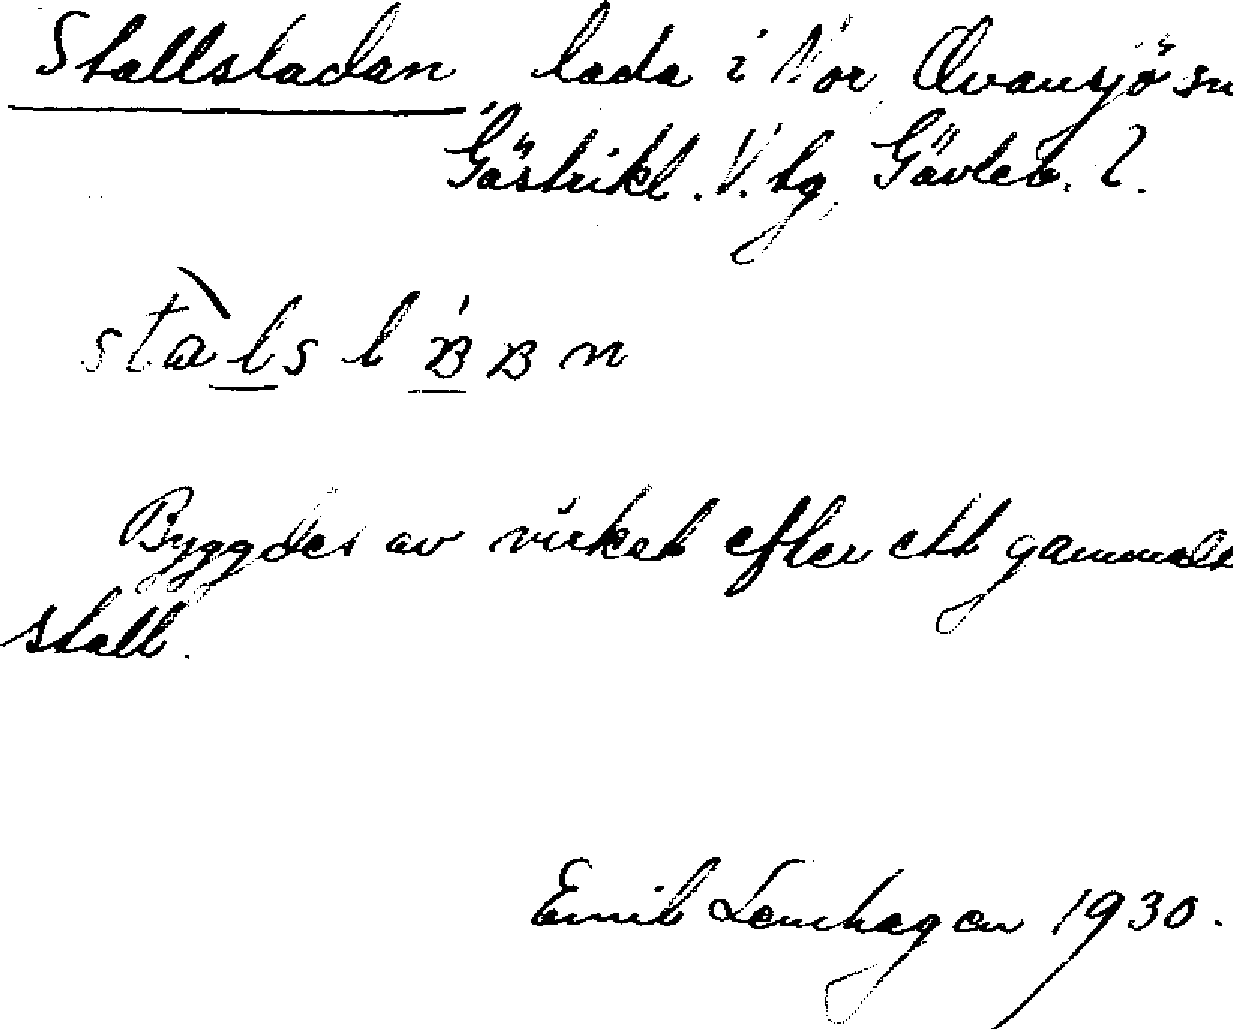 Stallsladan lada i Vor, Ovansjö sn
Gästrikl. V. tg, Gävleb. l.
stàlslʙ́ʙn
Byggdes av virket efter ett gammalt
stall.
Emil Lenhagen 1930.